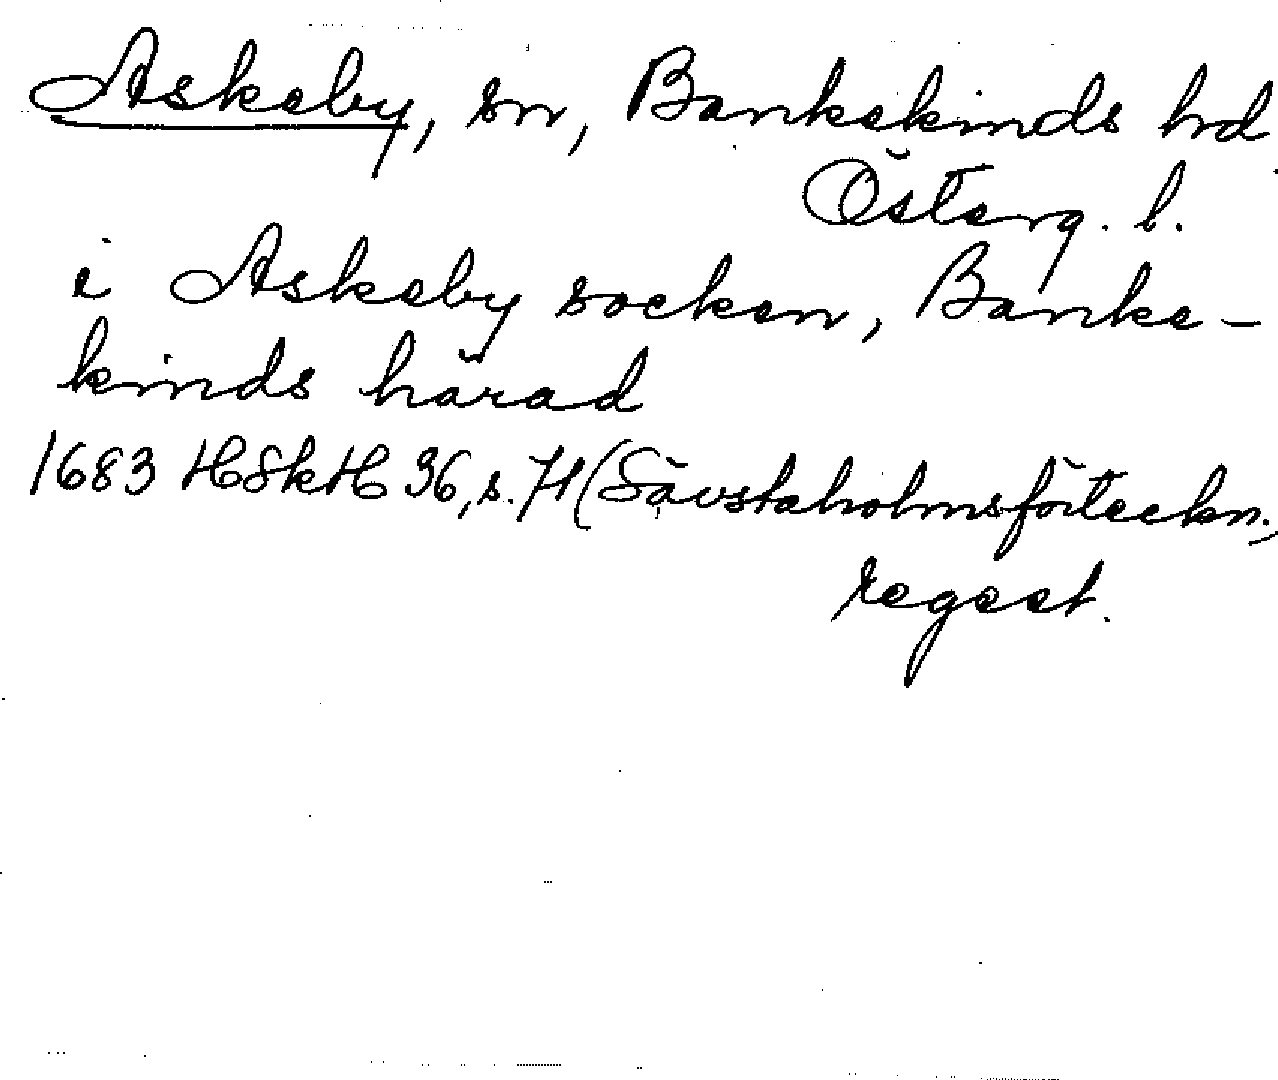 Askeby, sn, Bankekinds hrd
Österg. l.
i Askeby socken, Banke-
kinds härad
1683 HSkH 36, s. 71 (Sävstaholmsförteckn.,
regest.